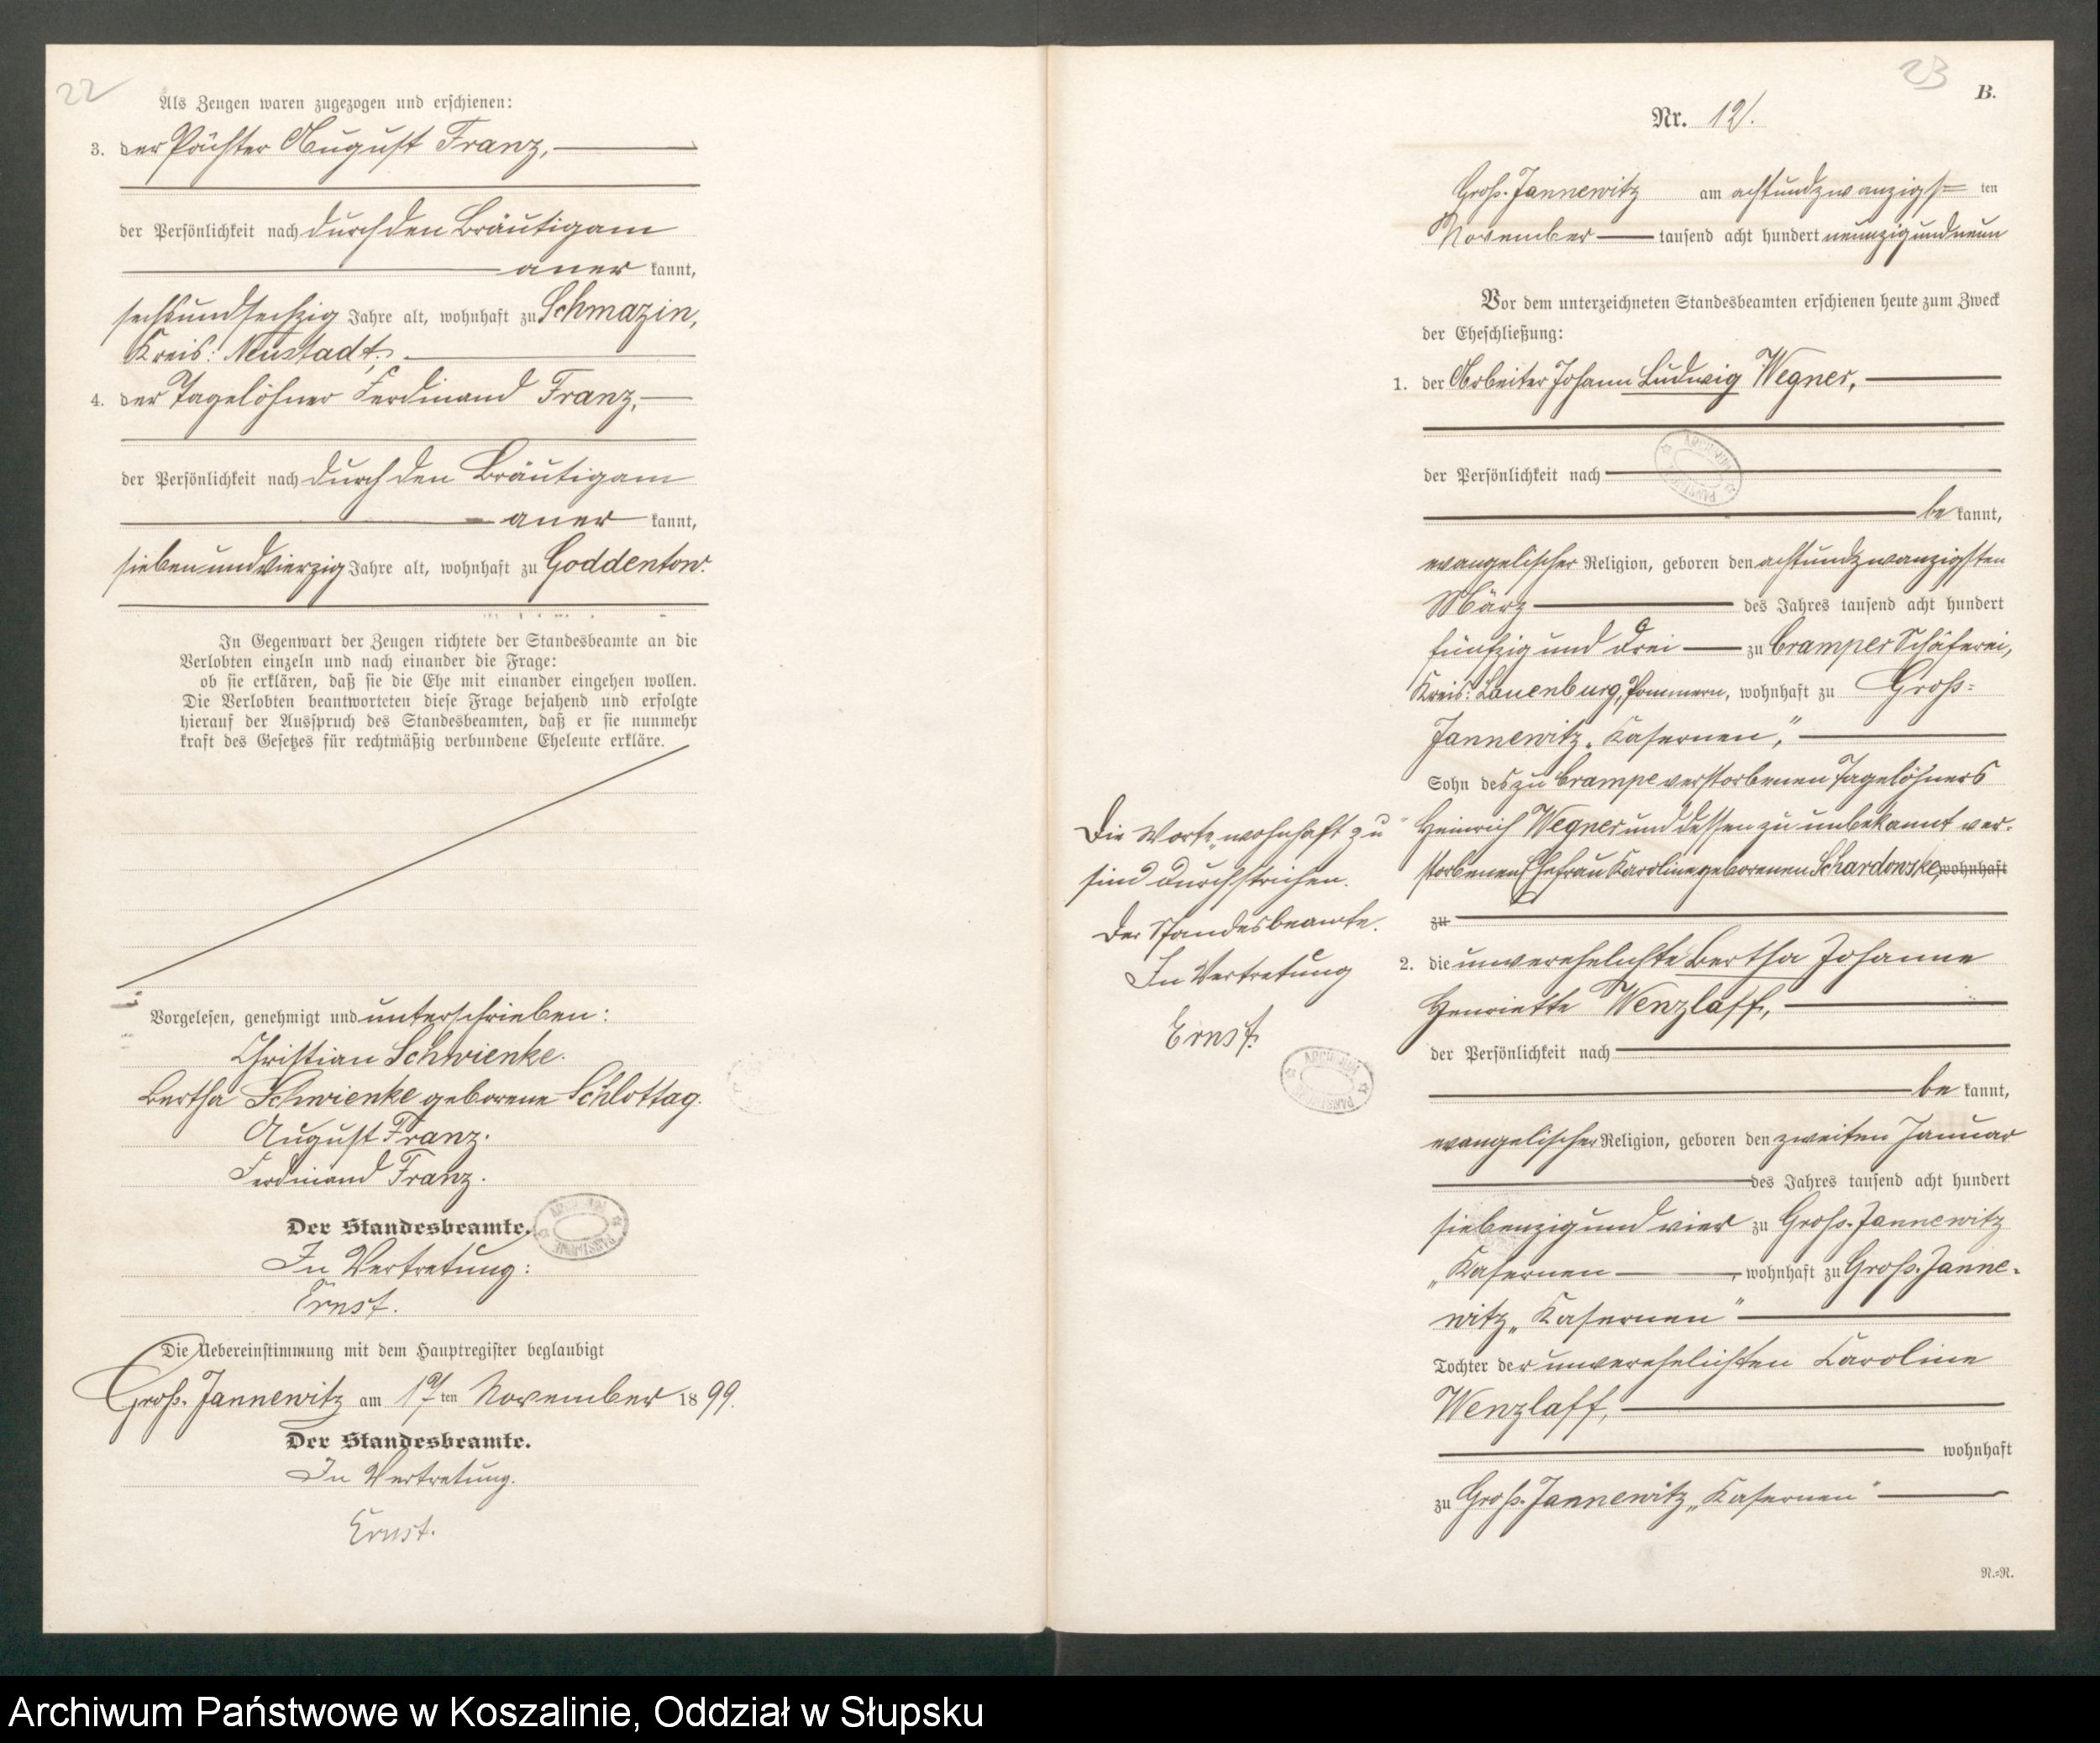 22
Als Zeugen waren zugezogen und erschienen:
3. der Pächter August Franz,
der Persönlichkeit nach durch den Bräutigam
aner kannt,
sechsundsechzig Jahre alt, wohnhaft zu Schmazin,
Kreis: Neustadt,
4. der Tagelöhner Ferdinand Franz,
der Persönlichkeit nach durch den Bräutigam
aner kannt,
siebenundvierzig Jahre alt, wohnhaft zu Goddentow.
In Gegenwart der Zeugen richtete der Standesbeamte an die
Verlobten einzeln und nach einander die Frage:
ob sie erklären, daß sie die Ehe mit einander eingehen wollen.
Die Verlobten beantworteten diese Frage bejahend und erfolgte
hierauf der Ausspruch des Standesbeamten, daß er sie nunmehr
kraft des Gesetzes für rechtmäßig verbundene Eheleute erkläre.
Vorgelesen, genehmigt und unterschrieben:
Christian Schwienke.
Bertha Schwienke geborene Schlottag.
August Franz.
Ferdinand Franz.
Der Standesbeamte.
In Vertretung:
Ernst.
Die Uebereinstimmung mit dem Hauptregister beglaubigt
Groß-Jannewitz am 17ten November 1899.
Der Standesbeamte.
In Vertretung.
Ernst.
23
B.
Nr. 12.
Groß-Jannewitz am achtundzwanzigs= ten
November tausend acht hundert neunzig und neun
Vor dem unterzeichneten Standesbeamten erschienen heute zum Zweck
der Eheschließung:
1. der Arbeiter Johann Ludwig Wegner,
der Persönlichkeit nach
be kannt,
evangelischer Religion, geboren den achtundzwanzigsten
März des Jahres tausend acht hundert
fünfzig und drei zu Cramper Schäferei,
Kreis: Lauenburg, Pommern, wohnhaft zu Groß-
Jannewitz „Kasernen“,
Sohn des zu Crampe verstorbenen Tagelöhners
Heinrich Wegner und dessen zu unbekannt ver-
storbenen Ehefrau Karoline geborenen Schardowske, wohnhaft
zu
2. die unverehelichte Bertha Johanne
Henriette Wenzlaff,
der Persönlichkeit nach
be kannt,
evangelischer Religion, geboren den zweiten Januar
des Jahres tausend acht hundert
siebenzig und vier zu Groß-Jannewitz
„Kasernen, wohnhaft zu Groß-Janne-
witz „Kasernen“
Tochter der unverehelichten Caroline
Wenzlaff,
wohnhaft
zu Groß-Jannewitz „Kasernen“
N.=N.
Die Worte „wohnhaft zu“
sind durchstrichen.
Der Standesbeamte.
In Vertretung
Ernst.
ARCHIWUM PAŃSTWOWE
Archiwum Państwowe w Koszalinie, Oddział w Słupsku